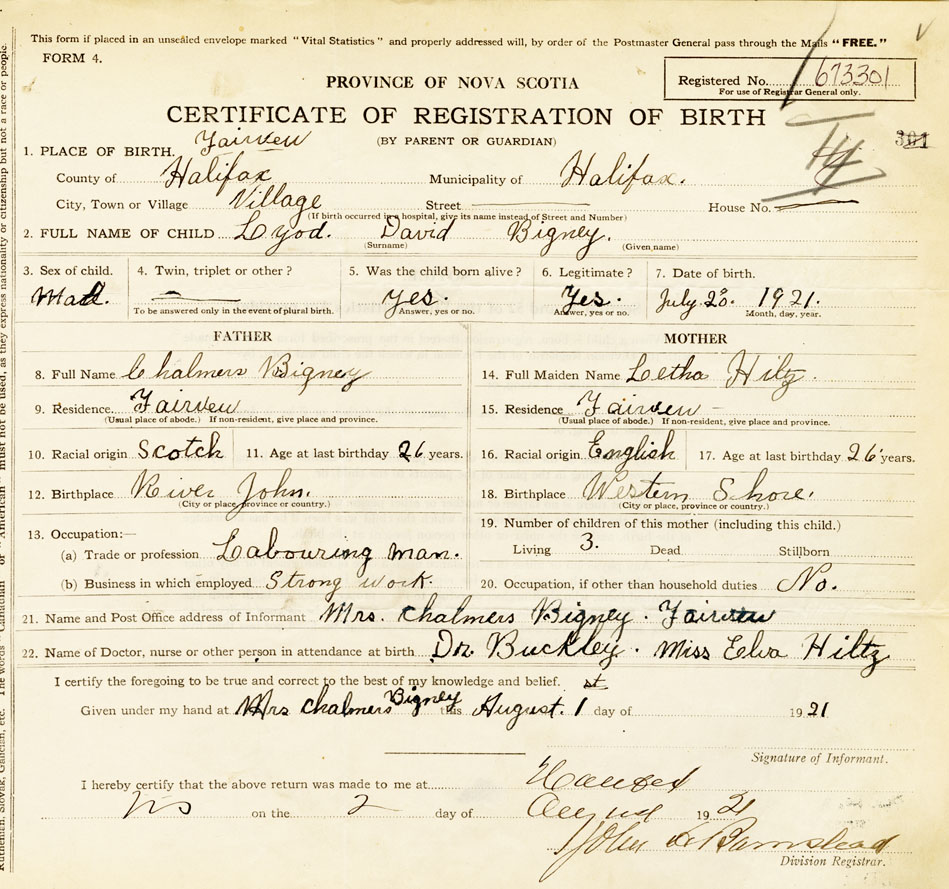 This form if placed in an unsealed envelope marked "Vital Statistics" and properly addressed will, by order of the Postmaster General pass through the Mails "FREE."
FORM 4.
Registered No. 673301
For use of Registrar General only.
PROVINCE OF NOVA SCOTIA
CERTIFICATE OF REGISTRATION OF BIRTH
(BY PARENT OR GUARDIAN)
301
1. PLACE OF BIRTH. Fairvew
County of Halifax Municipality of Halifax.
City, Town or Village Village Street House No.
(If birth occurred in a hospital, give its name instead of Street and Number)
2. FULL NAME OF CHILD Lyod. David Bigney.
(Surname) (Given name)
3. Sex of child. 4. Twin, triplet or other? 5. Was the child born alive? 6. Legitimate? 7. Date of birth.
Mal. yes. Yes. July 20. 1921.
To be answered only in the event of plural birth. Answer, yes or no. Answer, yes or no. Month, day, year.
FATHER MOTHER
8. Full Name Chalmers Bigney 14. Full Maiden Name Letha Hiltz.
9. Residence. Fairveu 15. Residence Fairveu
(Usual place of abode.) If non-resident, give place and province. (Usual place of abode.) If non-resident, give place and province.
10. Racial origin Scotch 11. Age at last birthday 26 years. 16. Racial origin English 17. Age at last birthday 26 years.
12. Birthplace River John. 18. Birthplace Western Shore.
(City or place, province or country.) (City or place, province or country.)
13. Occupation:— 19. Number of children of this mother (including this child.)
(a) Trade or profession Labouring man. Living 3. Dead Stillborn
(b) Business in which employed Strong work. 20. Occupation, if other than household duties No.
21. Name and Post Office address of Informant Mrs. Chalmers Bigney. Fairvew
22. Name of Doctor, nurse or other person in attendance at birth. Dr. Buckley. Miss Elva Hiltz
I certify the foregoing to be true and correct to the best of my knowledge and belief.
Given under my hand at Mrs Chalmers Bigney this August. 1 st day of 1921
Signature of Informant.
I hereby certify that the above return was made to me at Halifax
NS on the 2 day of August 1921
John A Barnstead
Division Registrar.